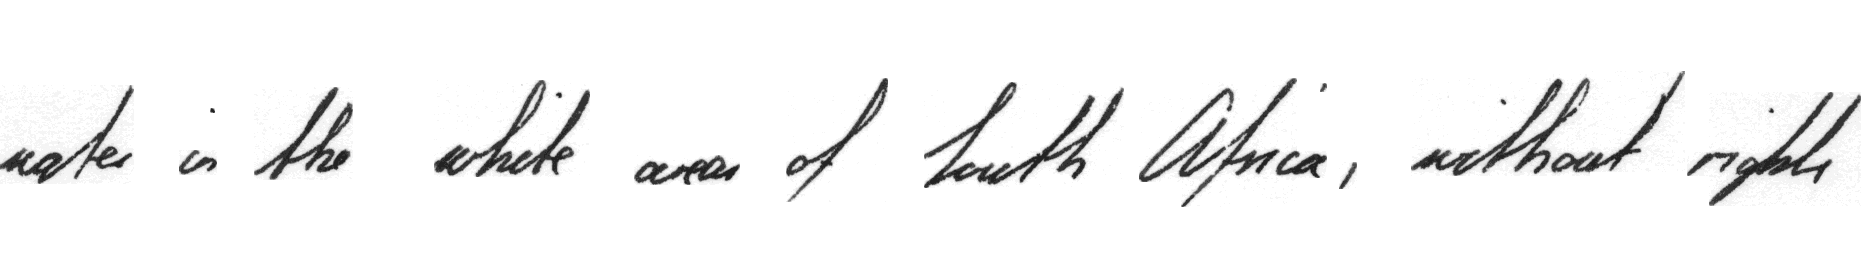 in the white areas of South Africa, without rights